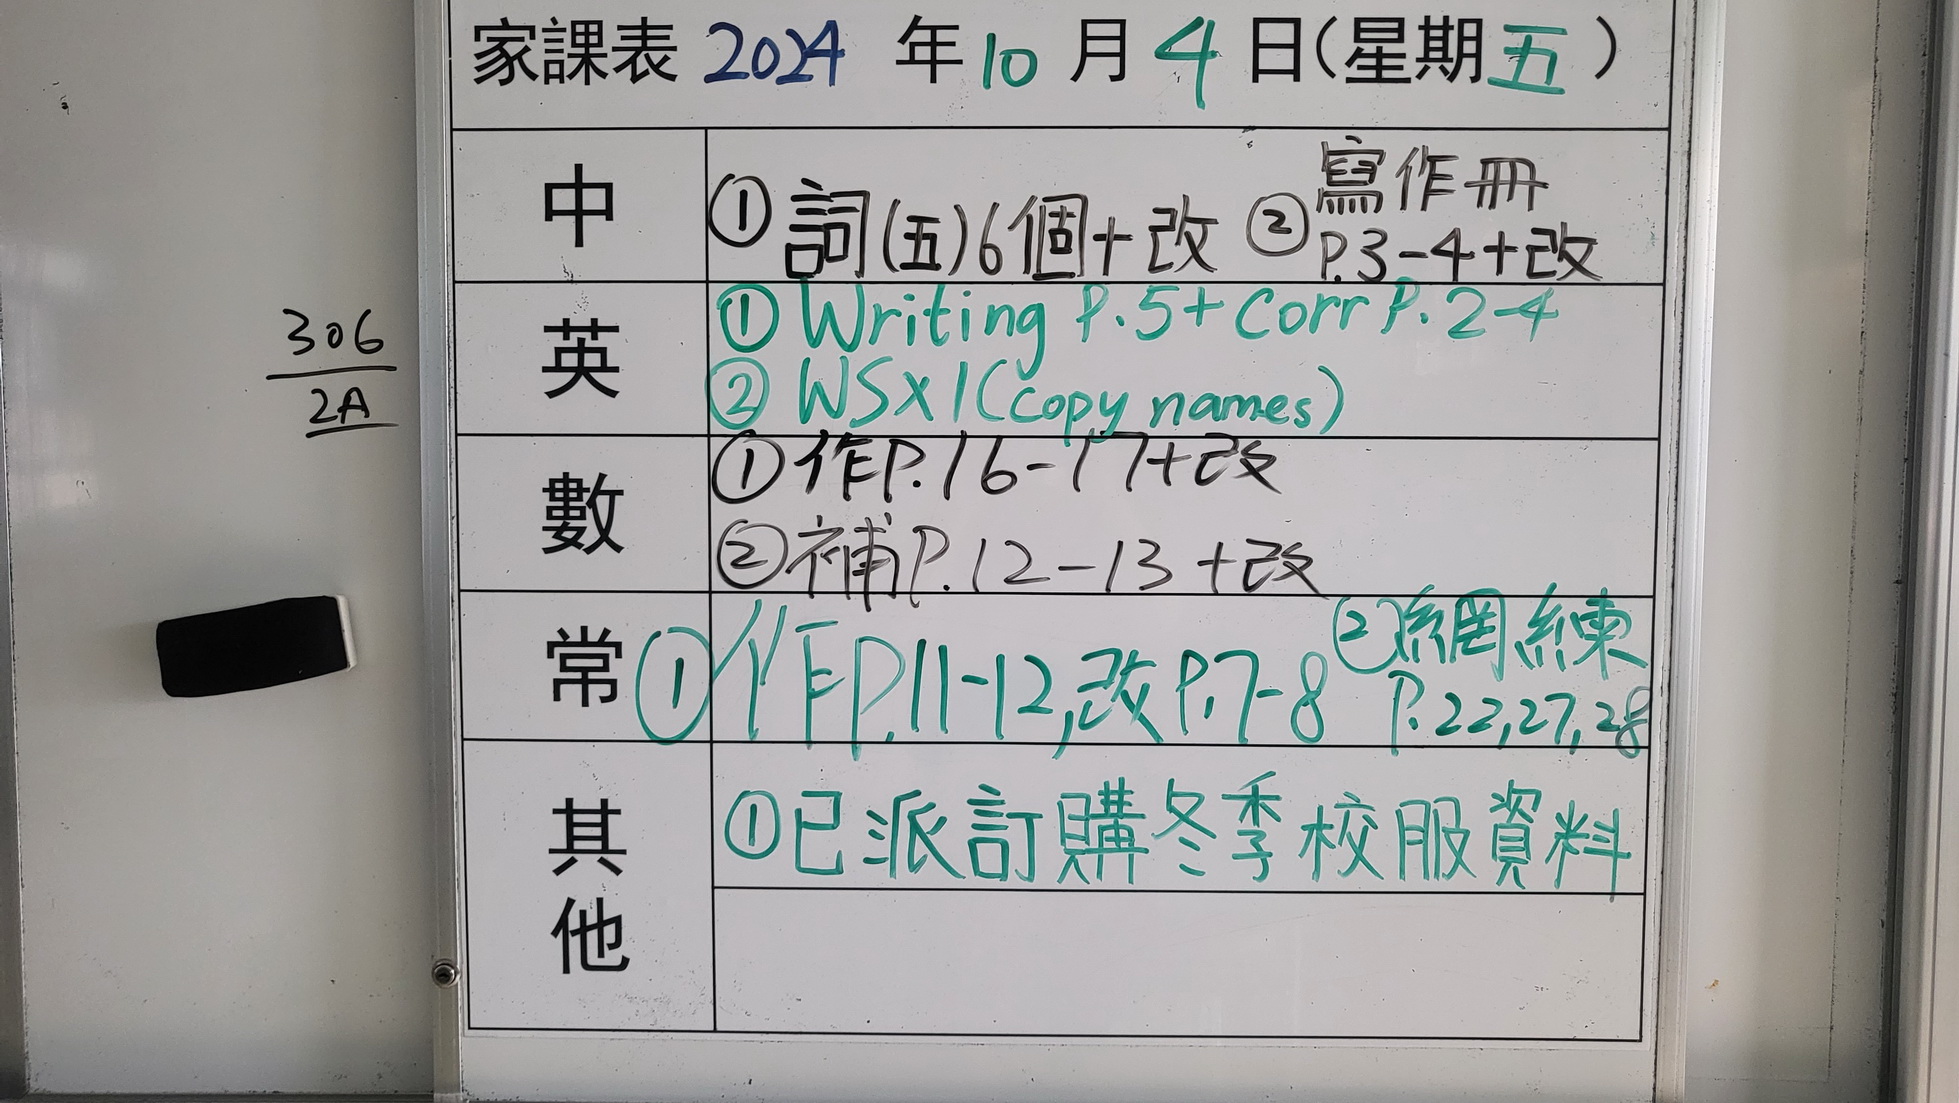 家課表 2024 年 10 月 4 日(星期五)
中
① 詞(五)6個+改 ② 寫作冊
P.3-4+改
英
① Writing P.5+Corr P.2-4
② WSx1(copy names)
數
① 作P.16-17+改
② 補P.12-13+改
常
① 作P.11-12,改P.7-8 ② 網練
P.22,27,28
其他
① 已派訂購冬季校服資料
306
2A